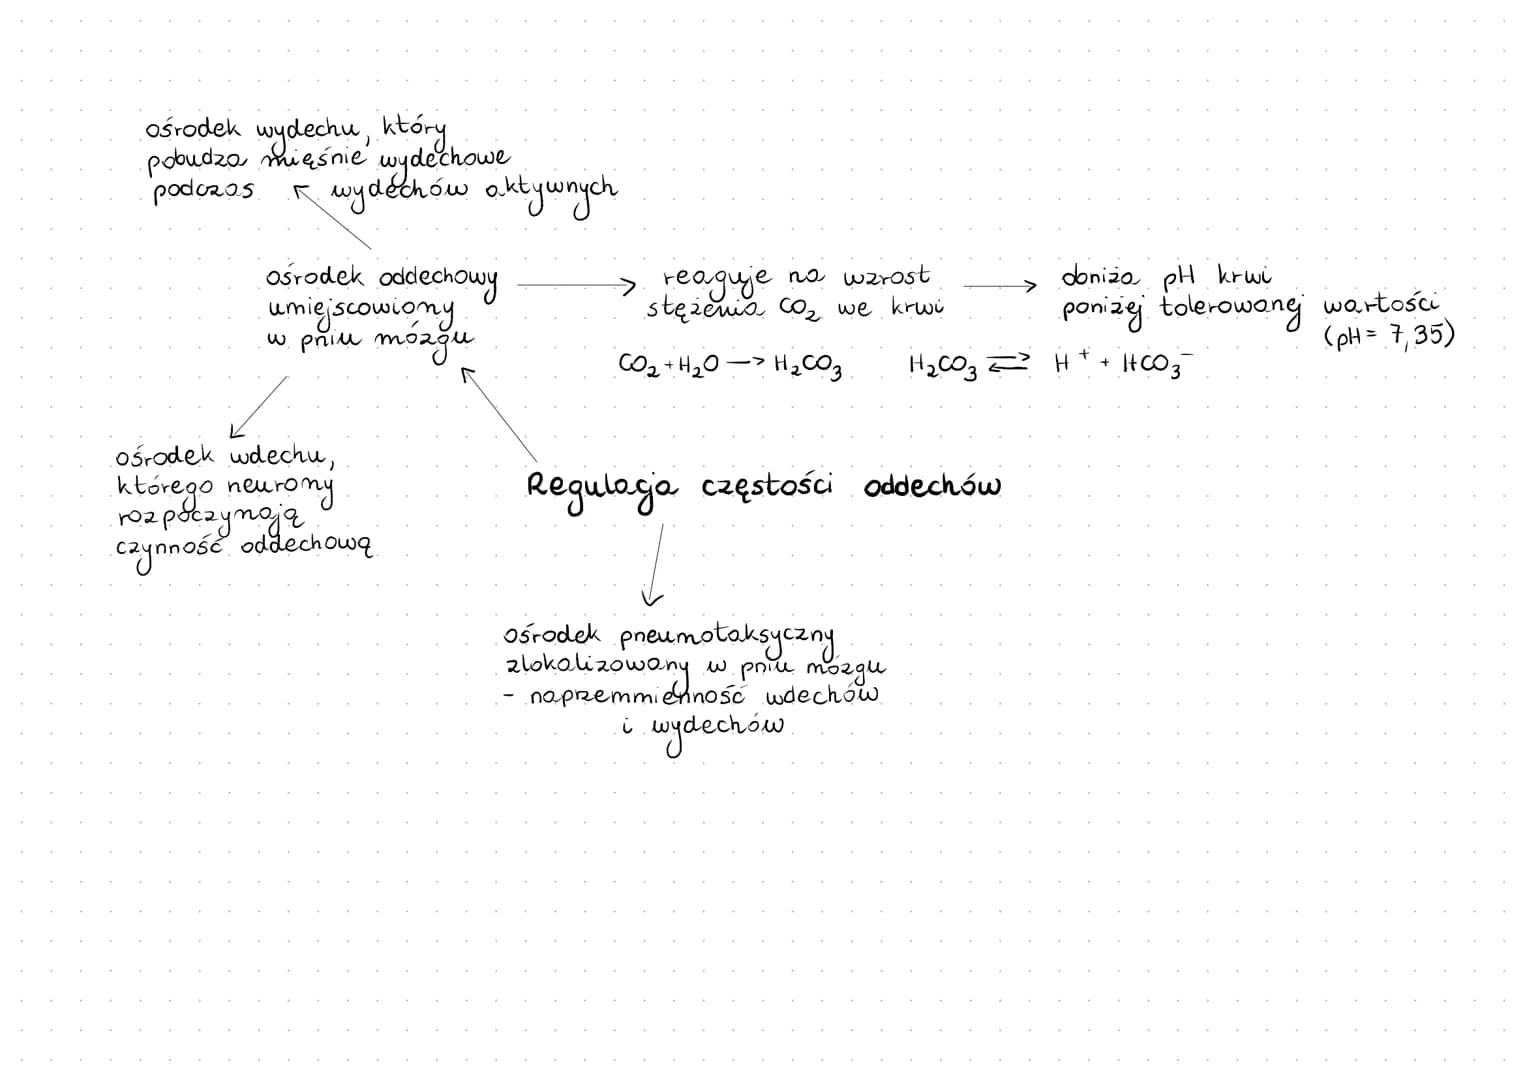 ośrodek wydechu, który
pobudza mięśnie wydechowe
podczas wydechów aktywnych
ośrodek oddechowy
umiejscowiony
w pniu mózgu
reaguje na wzrost
stężenia CO₂ we krwi
doniża pH krwi
poniżej tolerowanej wartości
(pH = 7,35)
CO₂ + H₂O → H₂CO₃
H₂CO₃ ⇄ H⁺ + HCO₃⁻
ośrodek wdechu,
którego neurony
rozpoczynają
czynność oddechową
Regulacja częstości oddechów
ośrodek pneumotaksyczny
zlokalizowany w pniu mózgu
- naprzemmienność wdechów
i wydechów